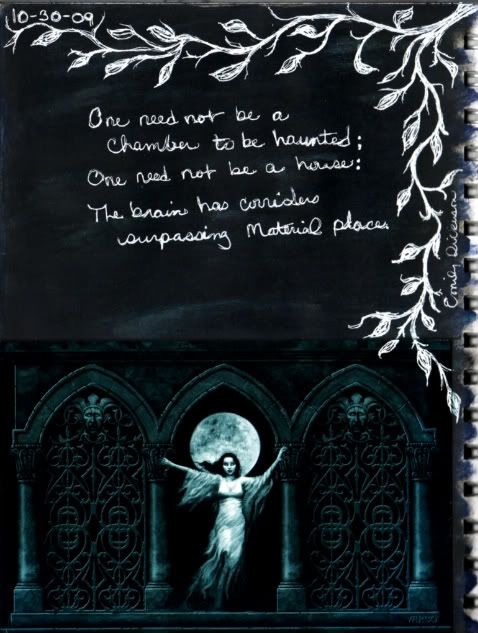 10-30-09
One need not be a
chamber to be haunted;
One need not be a house:
The brain has corriders
surpassing Material place.
Emily Dickenson
VARGO